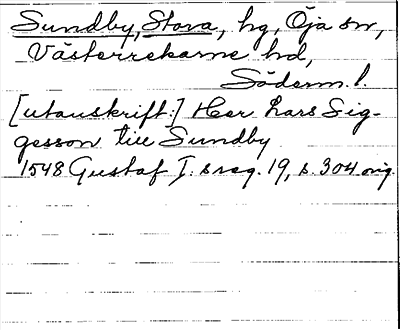 Sundby, Stora, hg, Öja sn,
Västerrekarne hd,
Söderm. l.
[utanskrift:] Her Lars Sig-
gesson till Sundby
1548 Gustaf I. s reg. 19, s. 304 orig.